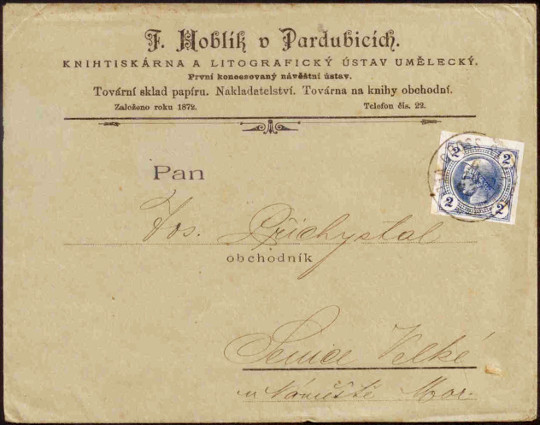 F. Hoblík v Pardubicích.
KNIHTISKÁRNA A LITOGRAFICKÝ ÚSTAV UMĚLECKÝ.
První koncesovaný návěštní ústav.
Tovární sklad papíru. Nakladatelství. Továrna na knihy obchodní.
Založeno roku 1872. Telefon čís. 22.
2 2
2 2
Pan
Jos. Přichystal
obchodník
Senice Velké
u Náměště Mor.